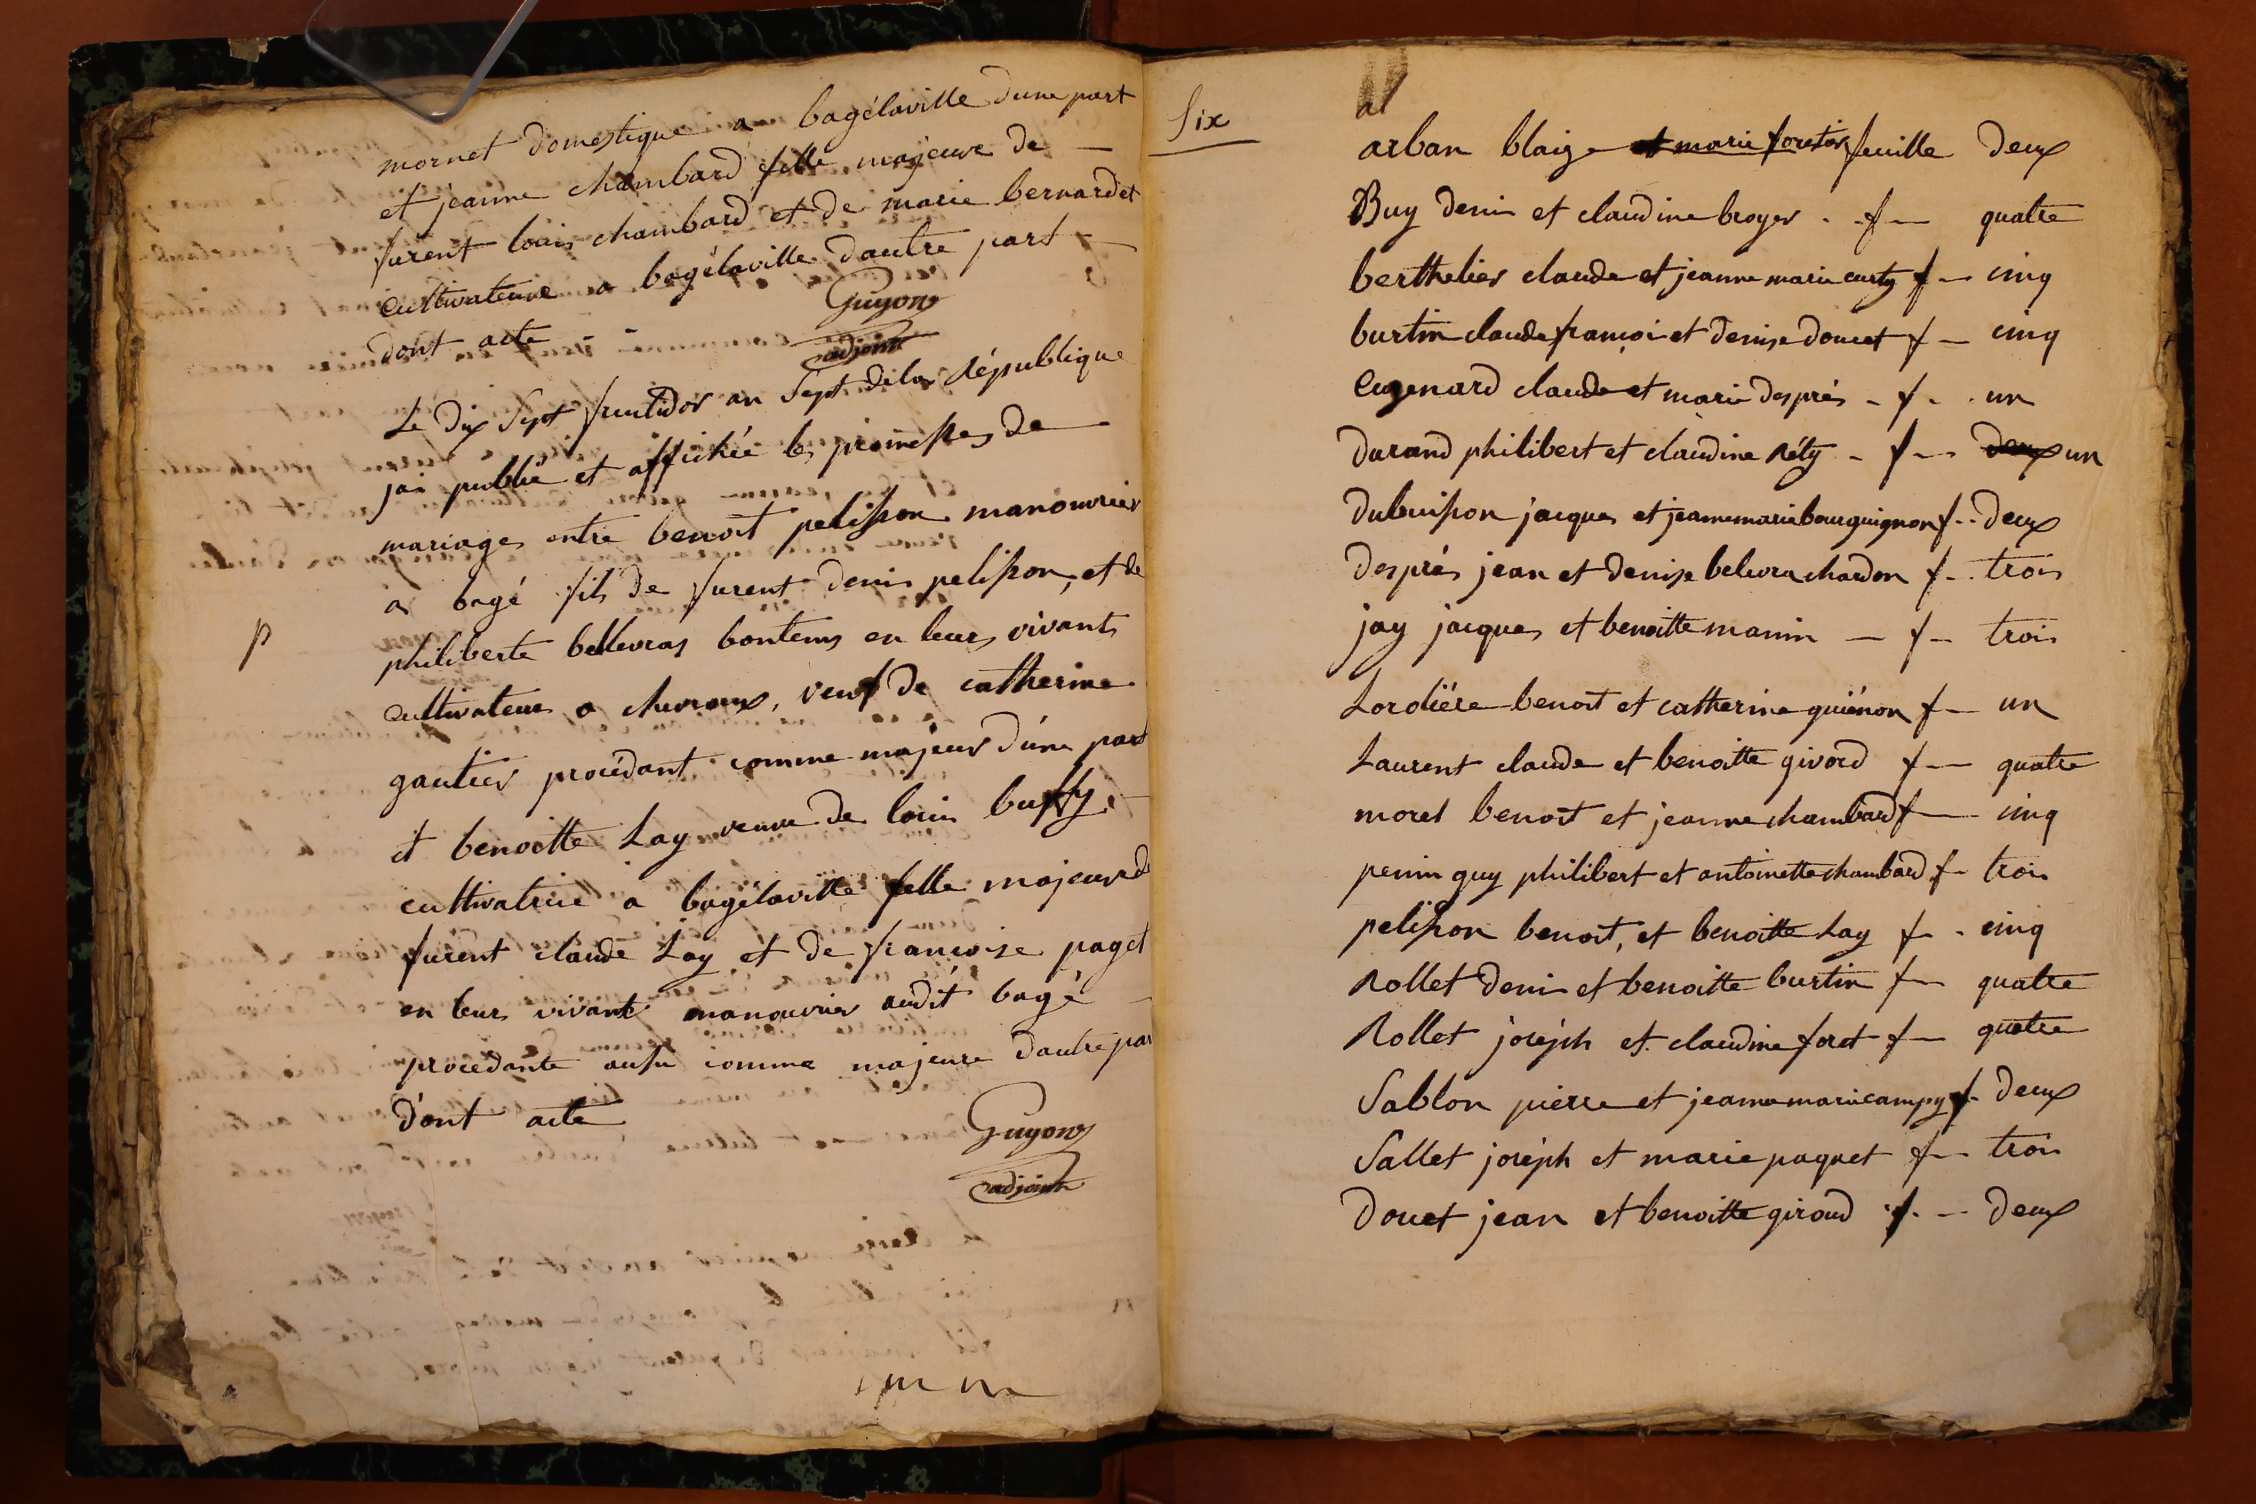 mornet domestique a bagélaville dune part
et jeanne chambard fille majeure de —
furent louis chambard et de marie bernardet
cultivateure a bagélaville dautre part —
dont acte -
Guyon
adjoint
Le dix Sept fructidor an Sept dela république
jai publié et affichée les promesses de
mariages entre benoit pelisson manouvrier
a bagé fils de furent denis pelisson, et de
p
philiberte bellevras bontems en leurs vivants
cultivateurs a chevroux, veuf de catherine
gautier procédant comme majeur dúne part
et benoitte Lay veuve de louis buffy,
cultivatrice a bagélaville fille majeure de
furent claude Lay et de françoise paget
en leurs vivants manouvrier audit bagé —
procedante aussi comme majeure dautre par
dont acte
Guyon
adjoint
Six
al
arban blaize et marie foretier feuille deux
Buy denis et claudine broyer . . f — quatre
berthelier claude et jeanne marie curty f — cinq
burtin claude françois et denise doucet f — cinq
Cugenard claude et marie desprès - f - . un
durand philibert et claudine réty - f - - deux un
dubuisson jacques et jeanne marie bourguignon f - - deux
després jean et denise belevra chardon f - . trois
jay jacques et benoitte manin — f - trois
Lordiére benoit et catherine guiénon f — un
Laurent claude et benoitte givord f — quatre
moret benoit et jeanne chambard f — cinq
penin guy philibert et antoinette chambard f - trois
pelisson benoit, et benoitte Lay f - . cinq
Rollet denis et benoitte burtin f — quatre
Rollet joséph et claudine foret f — quatre
Sablon pierre et jeanne marie campy f - deux
Sallet joséph et marie paquet f - - trois
Doucet jean et benoitte giroud f . — deux